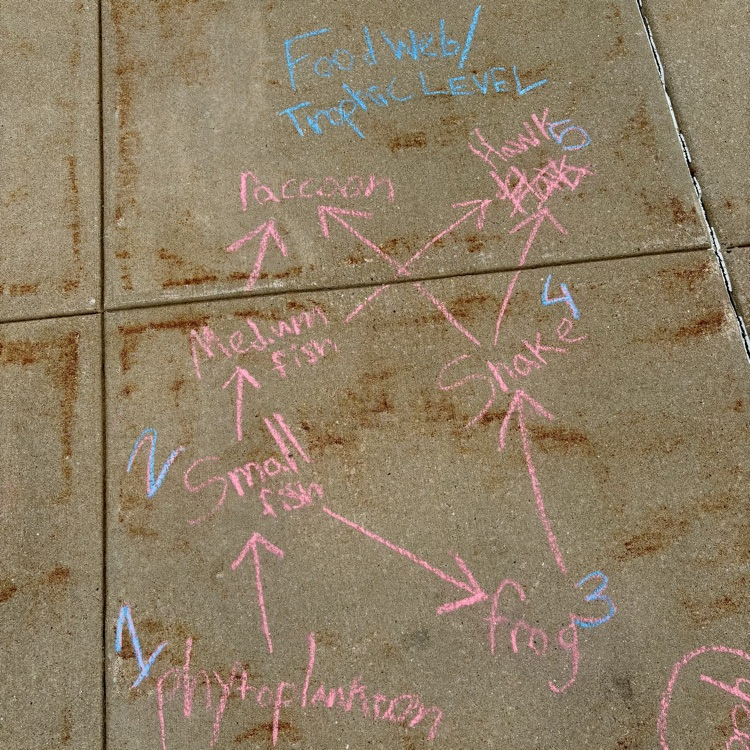 Food Web/
Trophic LEVEL
Hawk 5
raccoon
4
Medium
fish
Snake
2
Small
fish
3
frog
1
phytoplankton